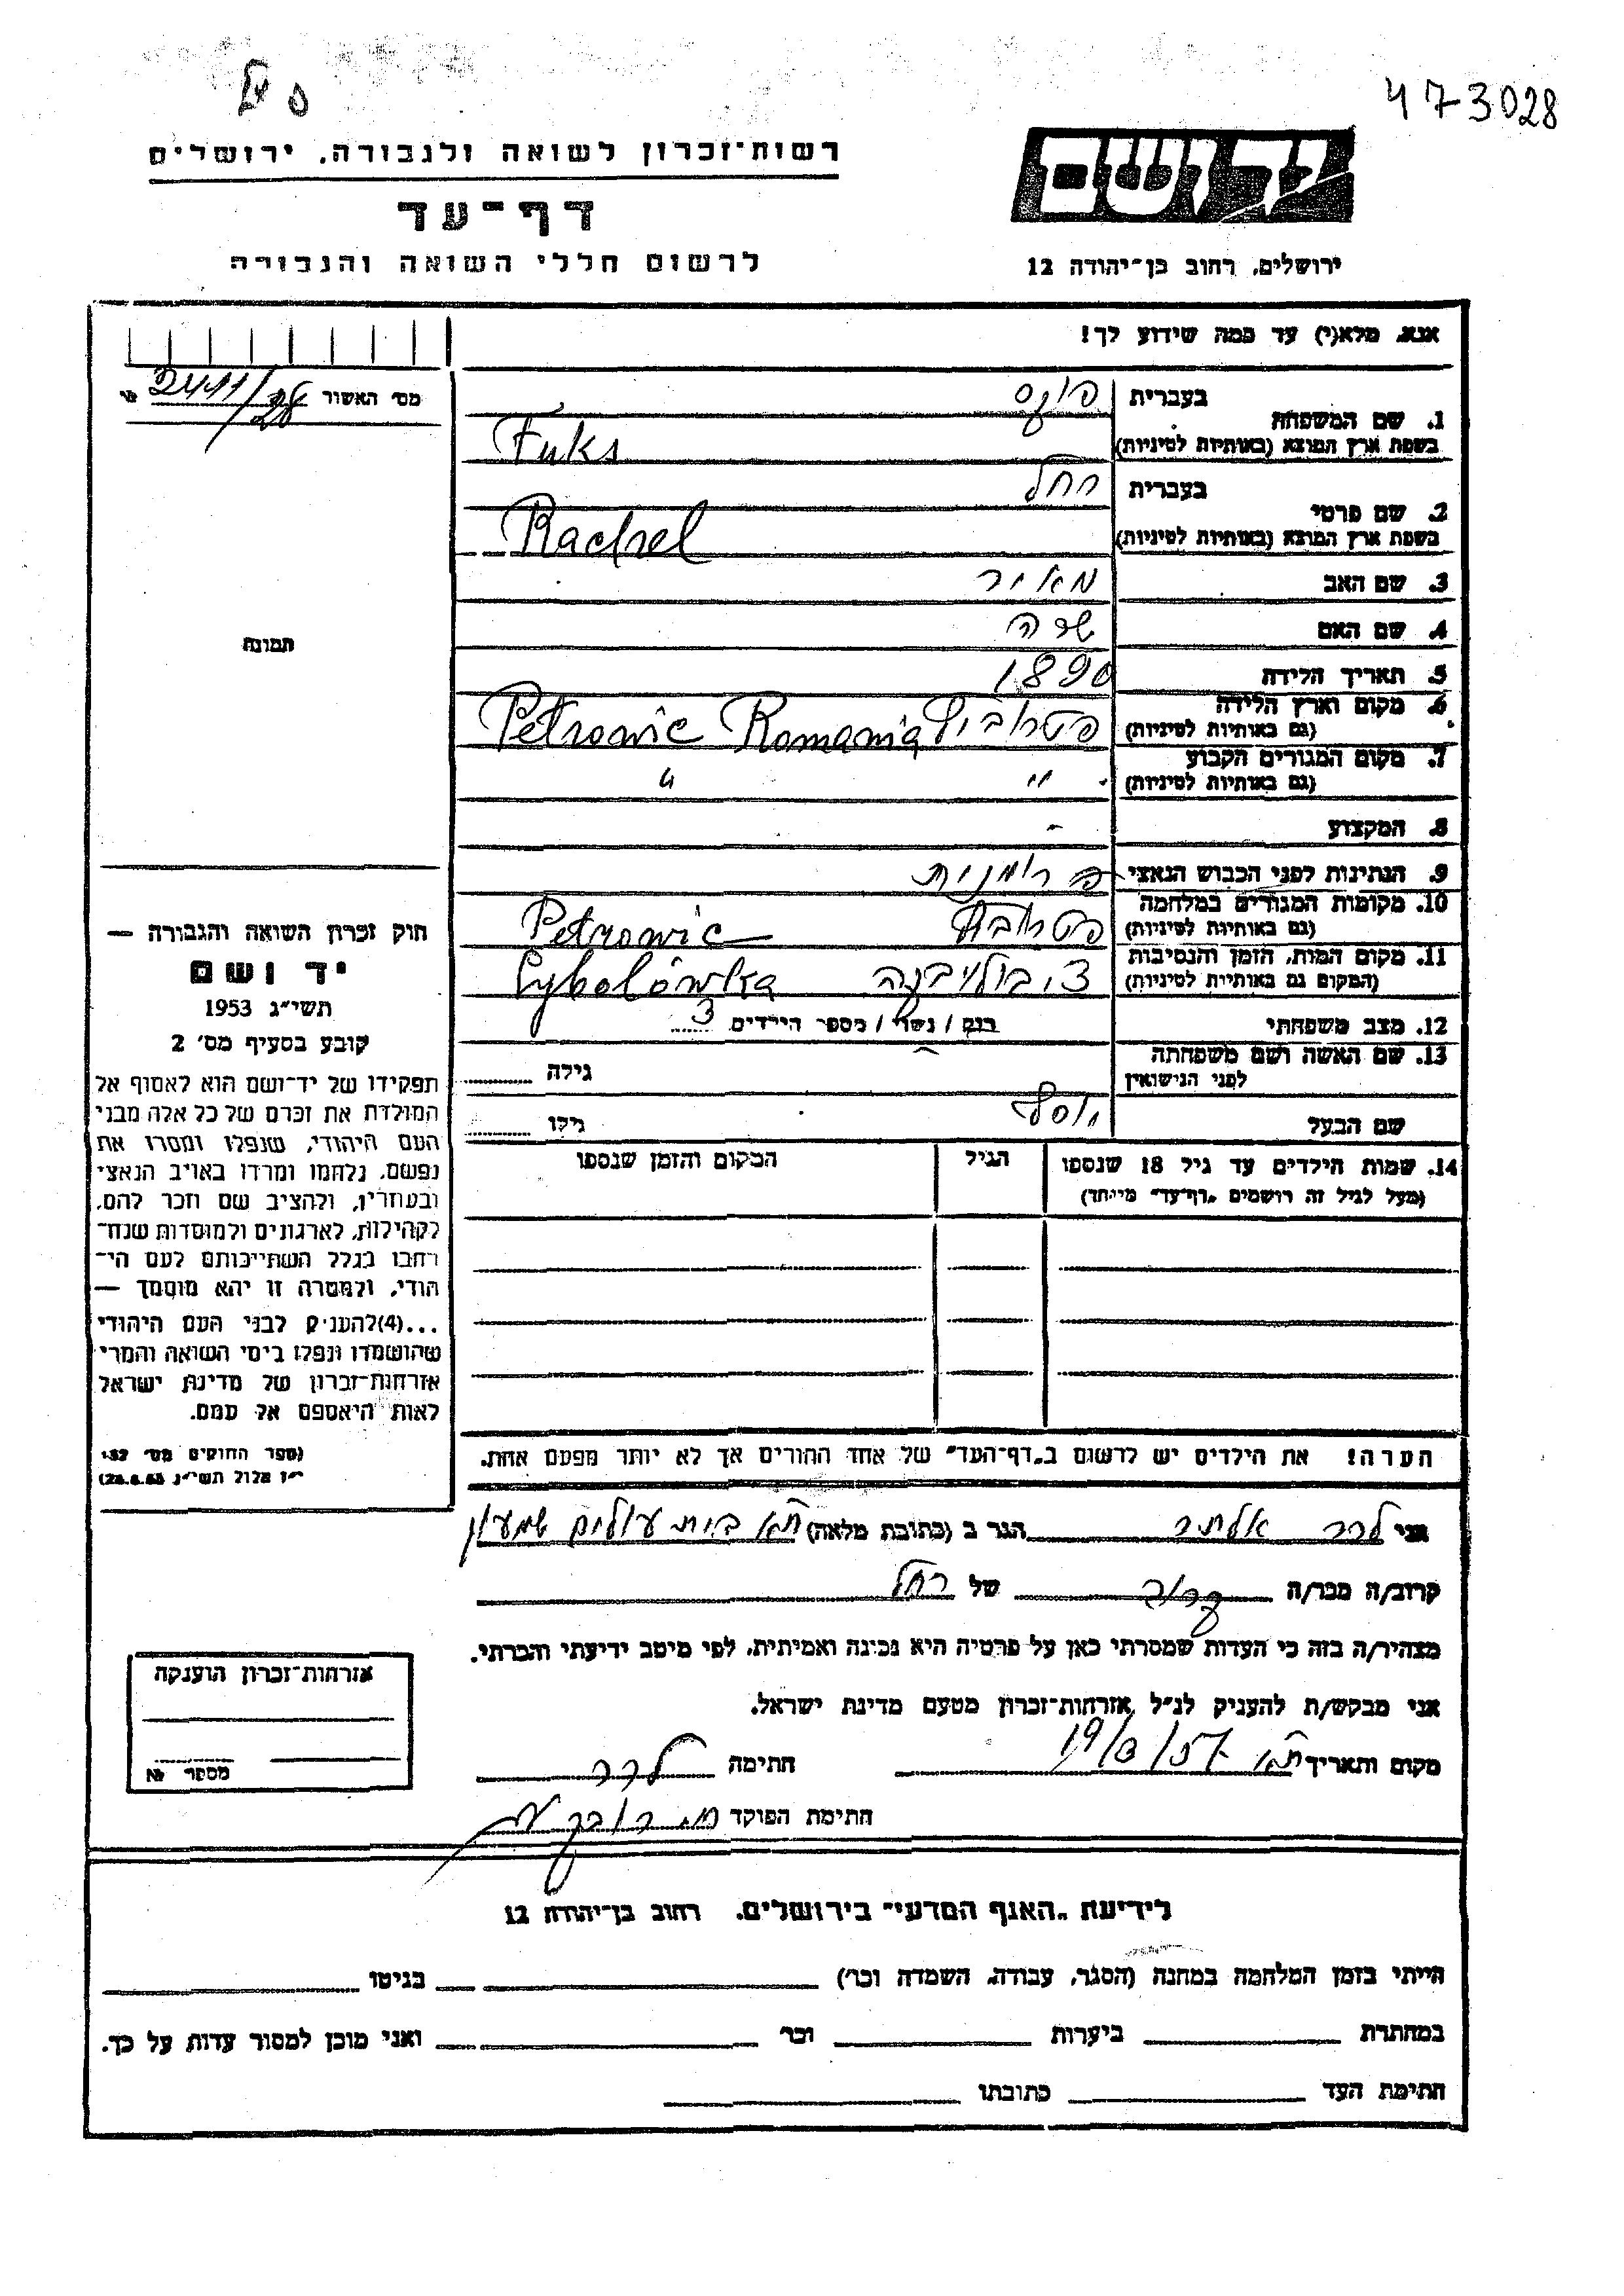 473028
רשות־זכרון לשואה ולגבורה, ירושלים
דף־עד
לרשום חללי השואה והגבורה
יד ושם
ירושלים, רחוב בן־יהודה 12
אנא, מלא(י) עד כמה שידוע לך!
מס׳ האשור 2411/28
1. שם המשפחה
בעברית פוקס
בשפת ארץ המוצא (באותיות לטיניות) Fuks
2. שם פרטי
בעברית רחל
בשפת ארץ המוצא (באותיות לטיניות) Rachel
3. שם האב מאיר
4. שם האם שרה
תמונה
5. תאריך הלידה 1890
6. מקום וארץ הלידה
(גם באותיות לטיניות) פטרוביץ Petrowic Romania
7. מקום המגורים הקבוע
(גם באותיות לטיניות) " "
8. המקצוע -
9. הנתינות לפני הכבוש הנאצי רומנית
10. מקומות המגורים במלחמה
(גם באותיות לטיניות) Petrowic
11. מקום המות, הזמן והנסיבות
(המקום גם באותיות לטיניות) Cybolówka
12. מצב משפחתי רווק / נשוי / מספר הילדים 3
13. שם האשה ושם משפחתה
לפני הנישואין - גילה
שם הבעל יוסף גילו
14. שמות הילדים עד גיל 18 שנספו
(מעל לגיל זה רושמים „דף־עד" מיוחד)
הגיל
המקום והזמן שנספו
חוק זכרון השואה והגבורה —
יד ושם
תשי״ג 1953
קובע בסעיף מס׳ 2
תפקידו של יד־ושם הוא לאסוף אל
המולדת את זכרם של כל אלה מבני
העם היהודי, שנפלו ומסרו את
נפשם, נלחמו ומרדו באויב הנאצי
ובעוזריו, ולהציב שם וזכר להם,
לקהילות, לארגונים ולמוסדות שנח־
רבו בגלל השתייכותם לעם הי־
הודי, ולמטרה זו יהא מוסמך —
...(4)להעניק לבני העם היהודי
שהושמדו ונפלו בימי השואה והמרי
אזרחות־זכרון של מדינת ישראל
לאות היאספם אל עמם.
(ספר החוקים מס׳ 132
י״ז אלול תשי״ג 28.8.53)
הערה! את הילדים יש לרשום ב„דף־העד" של אחד ההורים אך לא יותר מפעם אחת.
אני לרר אלתר הגר ב (כתובת מלאה) ת״א בית עולים שמעון
קרוב/ה מכר/ה קרוב של רחל
מצהיר/ה בזה כי העדות שמסרתי כאן על פרטיה היא נכונה ואמיתית, לפי מיטב ידיעתי והכרתי.
אני מבקש/ת להעניק לנ״ל אזרחות־זכרון מטעם מדינת ישראל.
מקום ותאריך ת״א 19/3/57 חתימה לרר
חתימת הפוקד
אזרחות־זכרון הוענקה
מספר №
לידיעת „האגף המדעי" בירושלים, רחוב בן־יהודה 12
הייתי בזמן המלחמה במחנה (הסגר, עבודה, השמדה וכו׳) בגיטו
במחתרת ביערות וכו׳ ואני מוכן למסור עדות על כך.
חתימת העד כתובתו